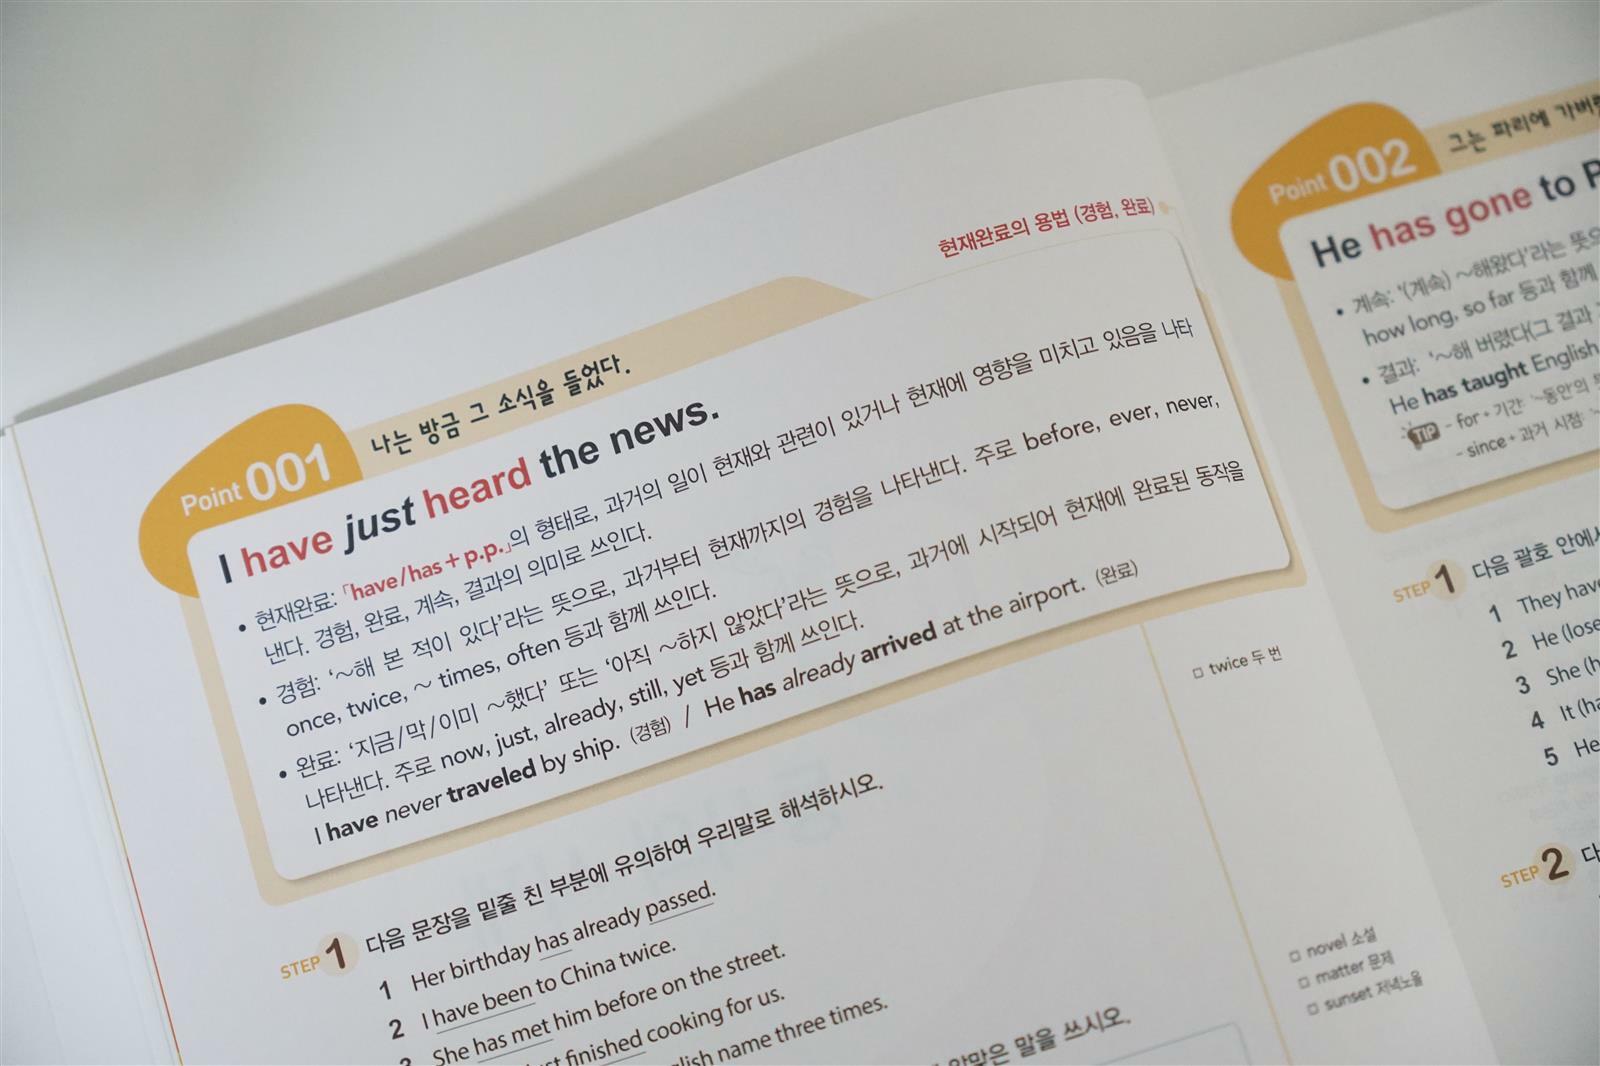 현재완료의 용법 (경험, 완료)
Point 001
나는 방금 그 소식을 들었다.
I have just heard the news.
• 현재완료: 「have/has+p.p.」의 형태로, 과거의 일이 현재와 관련이 있거나 현재에 영향을 미치고 있음을 나타
낸다. 경험, 완료, 계속, 결과의 의미로 쓰인다.
• 경험: ‘～해 본 적이 있다’라는 뜻으로, 과거부터 현재까지의 경험을 나타낸다. 주로 before, ever, never,
once, twice, ～ times, often 등과 함께 쓰인다.
• 완료: ‘지금/막/이미 ～했다’ 또는 ‘아직 ～하지 않았다’라는 뜻으로, 과거에 시작되어 현재에 완료된 동작을
나타낸다. 주로 now, just, already, still, yet 등과 함께 쓰인다.
I have never traveled by ship. (경험) / He has already arrived at the airport. (완료)
STEP 1 다음 문장을 밑줄 친 부분에 유의하여 우리말로 해석하시오.
1 Her birthday has already passed.
2 I have been to China twice.
3 She has met him before on the street.
finished cooking for us.
name three times.
알맞은 말을 쓰시오.
□ twice 두 번
□ novel 소설
□ matter 문제
□ sunset 저녁노을
Point 002
그는 파리에
He has gone to
• 계속: ‘(계속) ～해왔다’라는
how long, so far 등과 함께
• 결과: ‘～해 버렸다(그 결과
He has taught English
TIP - for+기간: ‘~동안의
- since+과거 시점:
STEP 1 다음 괄호
1 They have
2 He
3 She
4 It
5 He
STEP 2